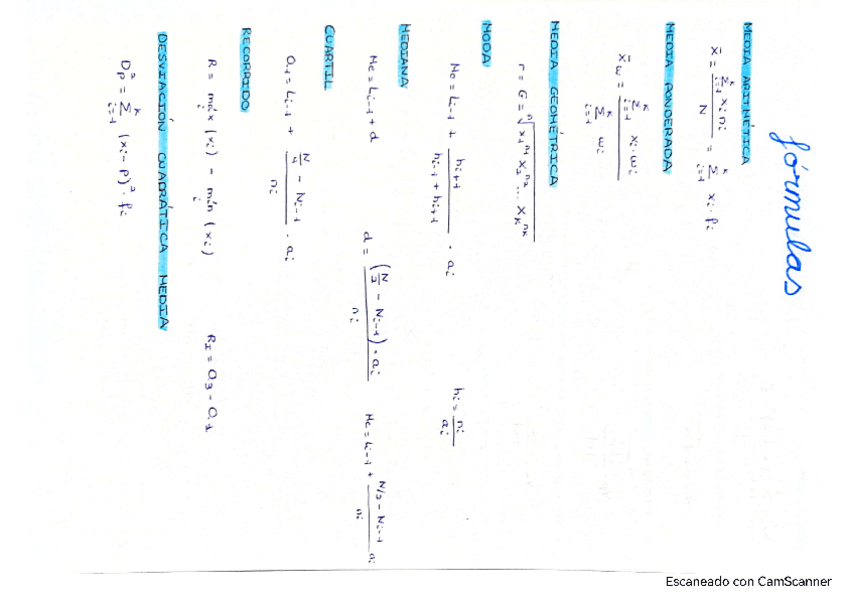 fórmulas
MEDIA ARITMÉTICA
x̄ = Σᵏᵢ₌₁ xᵢnᵢ / N = Σᵏᵢ₌₁ xᵢ · fᵢ
MEDIA PONDERADA
x̄ω = Σᵏᵢ₌₁ xᵢ · ωᵢ / Σᵏᵢ₌₁ ωᵢ
MEDIA GEOMÉTRICA
r = G = ⁿ√(x₁ⁿ¹ x₂ⁿ² ... x_kⁿᵏ)
MODA
Mo = Lᵢ₋₁ + hᵢ₊₁ / (hᵢ₋₁ + hᵢ₊₁) · aᵢ    hᵢ = nᵢ / aᵢ
MEDIANA
Me = Lᵢ₋₁ + d    d = (N/2 − Nᵢ₋₁) · aᵢ / nᵢ    Me = Lᵢ₋₁ + (N/2 − Nᵢ₋₁) / nᵢ aᵢ
CUARTIL
Q₁ = Lᵢ₋₁ + (N/4 − Nᵢ₋₁) / nᵢ · aᵢ
RECORRIDO
R = máxᵢ (xᵢ) − mínᵢ (xᵢ)    R_I = Q₃ − Q₁
DESVIACIÓN CUADRÁTICA MEDIA
D²p = Σᵏᵢ₌₁ (xᵢ − p)² · fᵢ
Escaneado con CamScanner